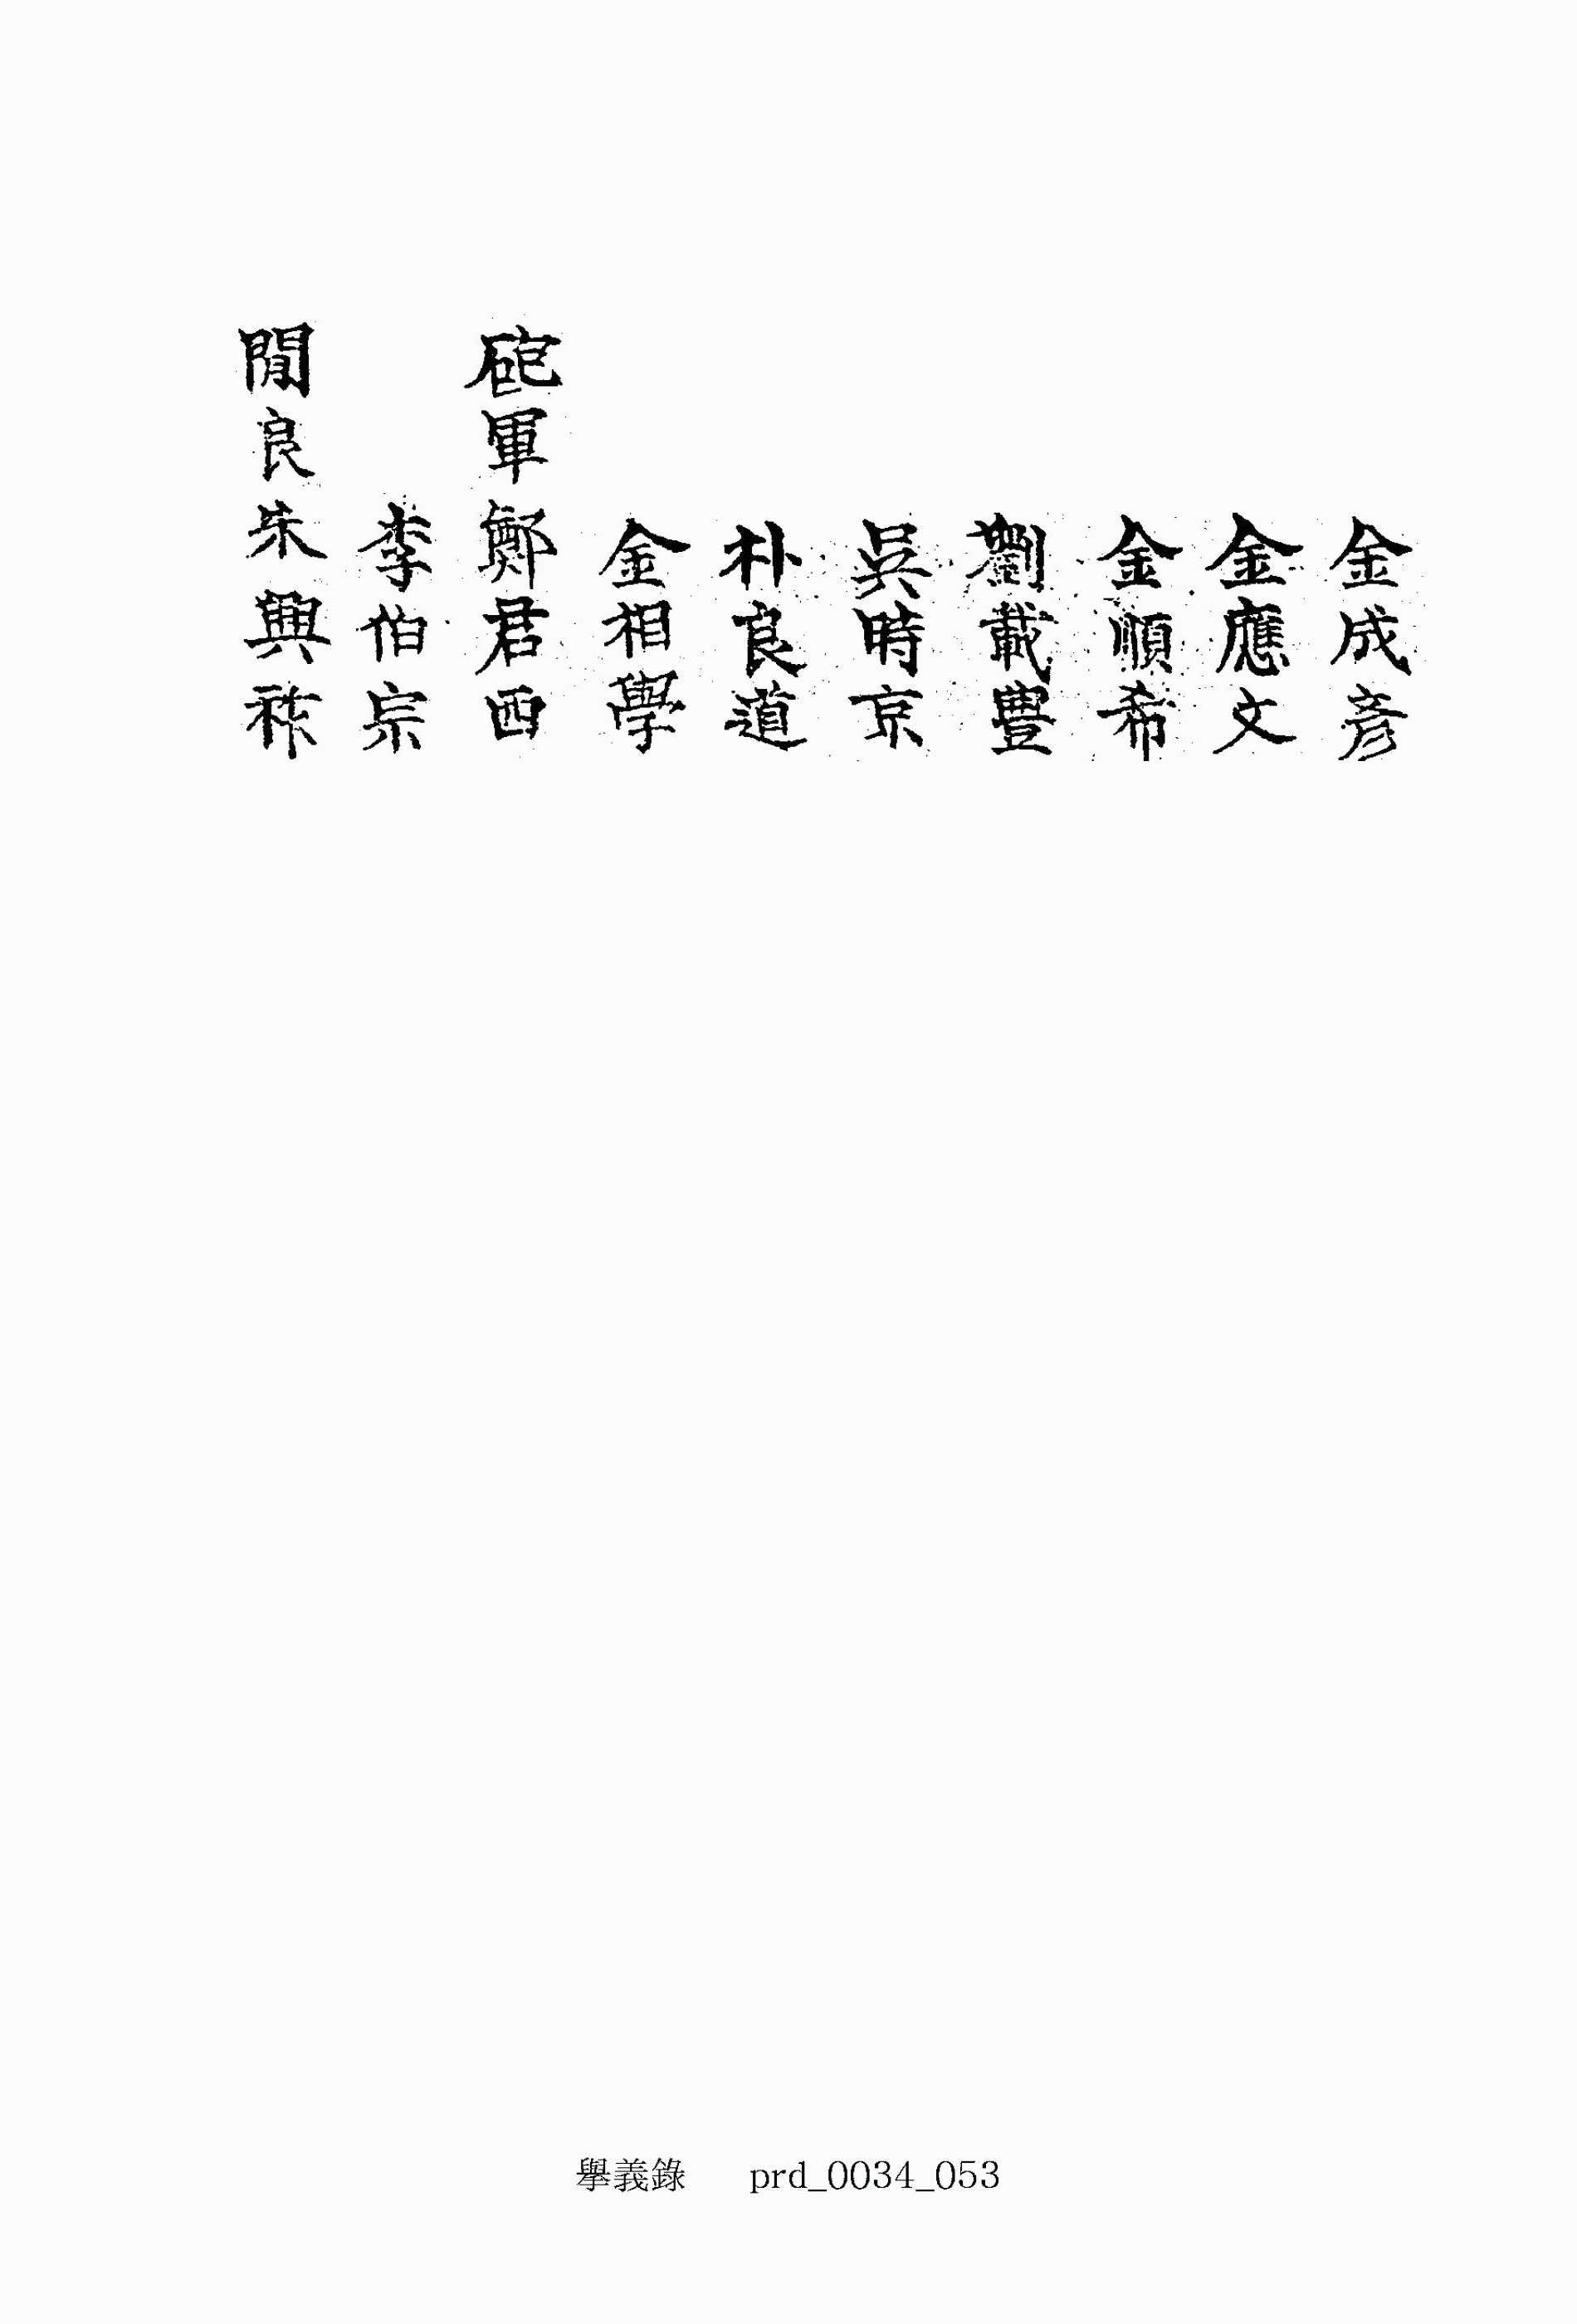 金成彦
金應文
金順希
劉載豊
吳時京
朴良道
金相學
砲軍鄭君西
李伯宗
閒良朱興祚
擧義錄 prd_0034_053